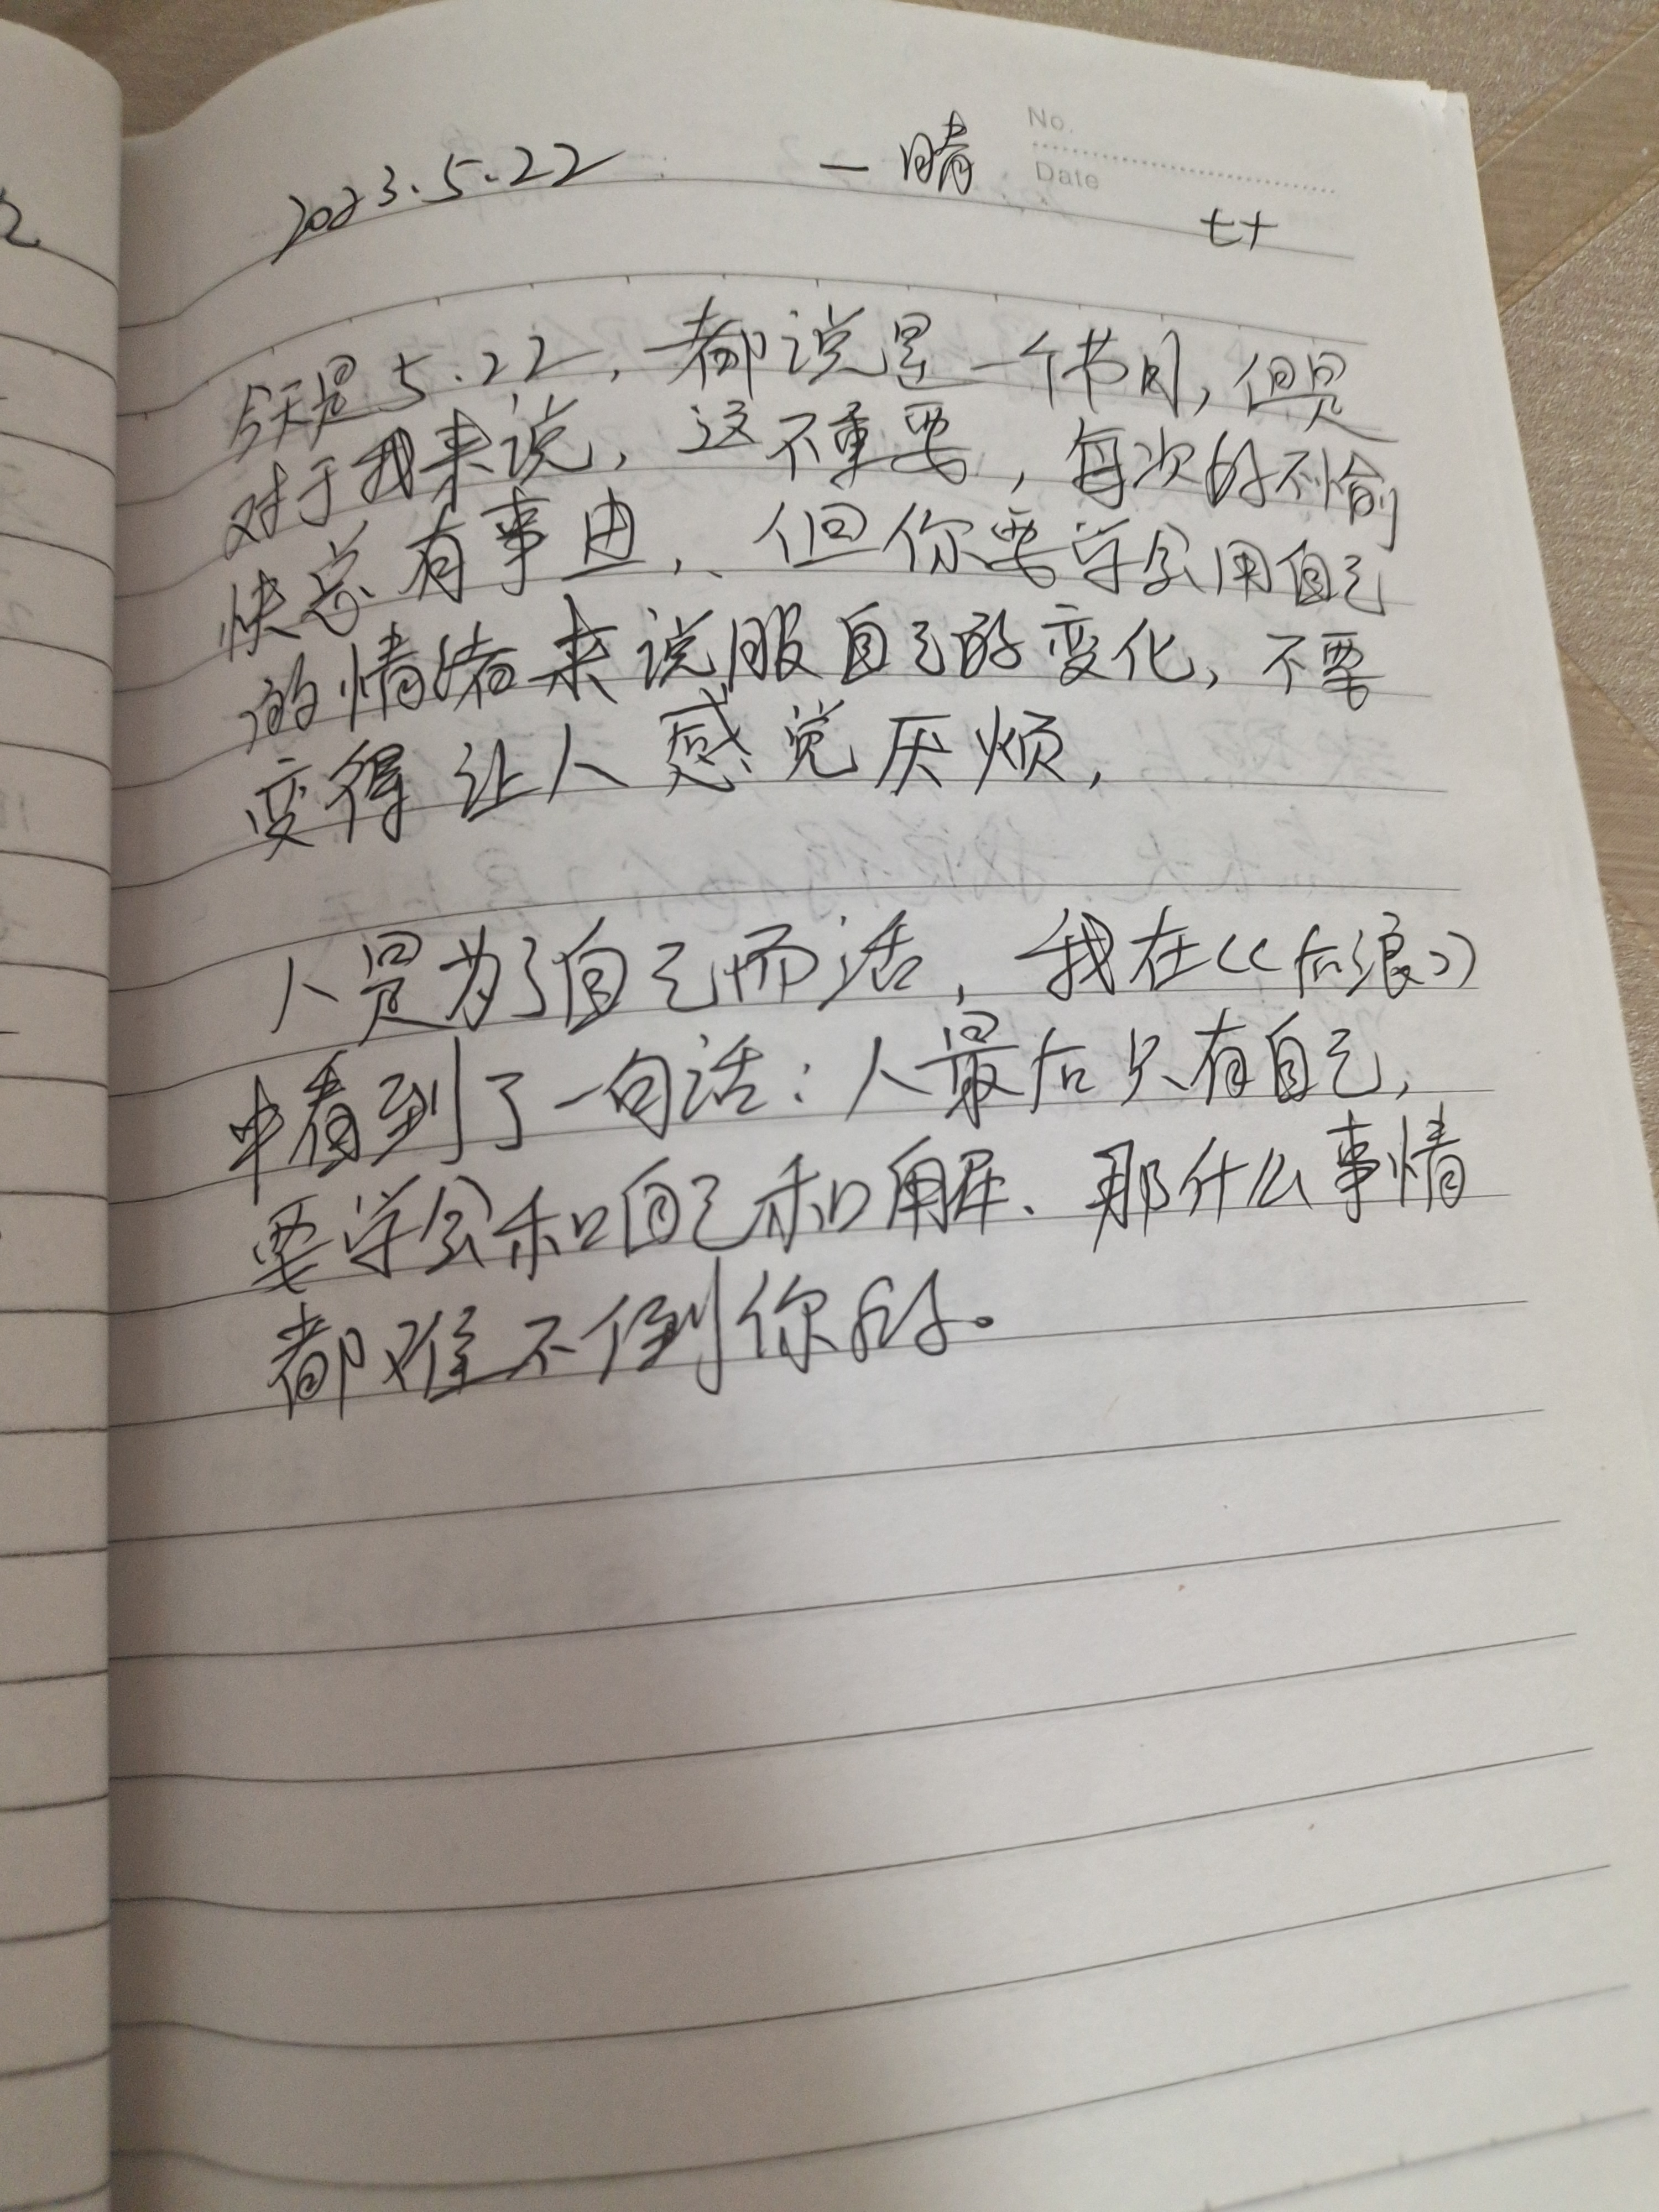 No.
2023.5.22 一 晴
Date
七十
今天是5.22,都说是一个节日,但是
对于我来说,这不重要,每次的不愉
快总有事由,、但你要学会用自己
的情绪来说服自己的变化,不要
变得让人感觉厌烦,
人是为了自己而活,我在《后浪》
中看到了一句话:人最后只有自己,
要学会和自己和解、那什么事情
都难不倒你的。